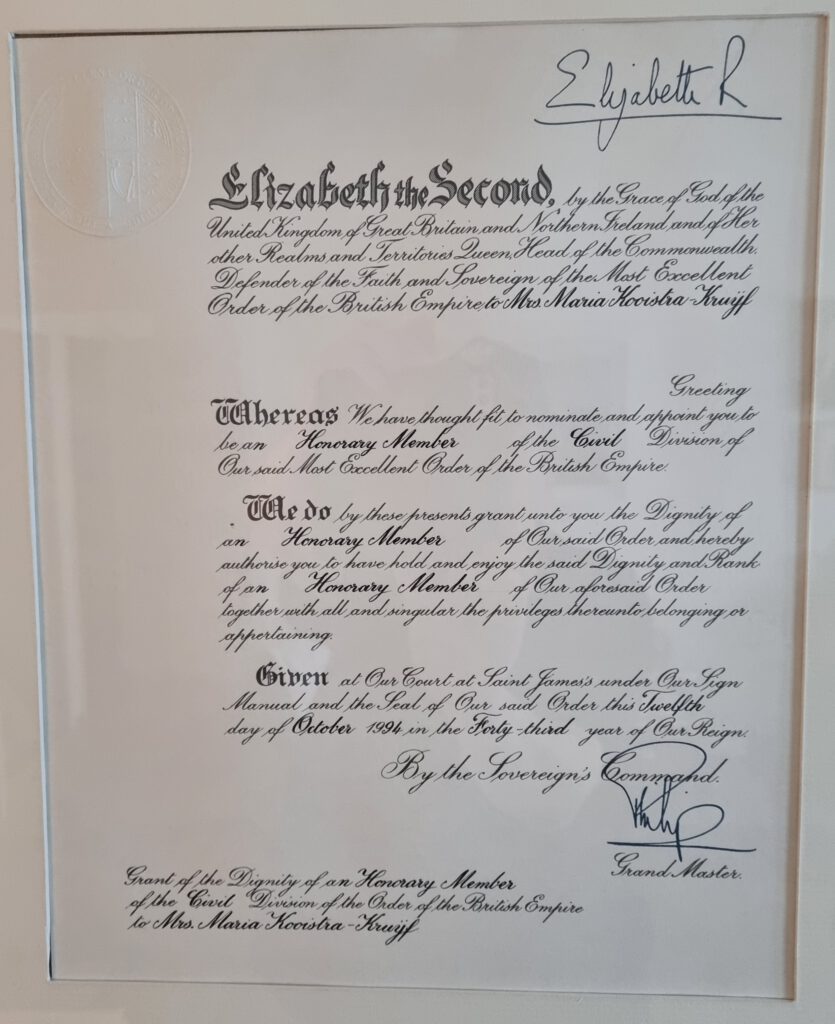 Elizabeth R
Elizabeth the Second, by the Grace of God, of the
United Kingdom of Great Britain and Northern Ireland and of Her
other Realms and Territories Queen, Head of the Commonwealth,
Defender of the Faith and Sovereign of the Most Excellent
Order of the British Empire to Mrs. Maria Kooistra-Kruijf
Greeting
Whereas We have thought fit to nominate and appoint you to
be an Honorary Member of the Civil Division of
Our said Most Excellent Order of the British Empire.
We do by these presents grant unto you the Dignity of
an Honorary Member of Our said Order and hereby
authorise you to have hold and enjoy the said Dignity and Rank
of an Honorary Member of Our aforesaid Order
together with all and singular the privileges thereunto belonging or
appertaining.
Given at Our Court at Saint James's under Our Sign
Manual and the Seal of Our said Order this Twelfth
day of October 1994 in the Forty-third year of Our Reign.
By the Sovereign's Command.
Philip
Grand Master.
Grant of the Dignity of an Honorary Member
of the Civil Division of the Order of the British Empire
to Mrs. Maria Kooistra-Kruijf